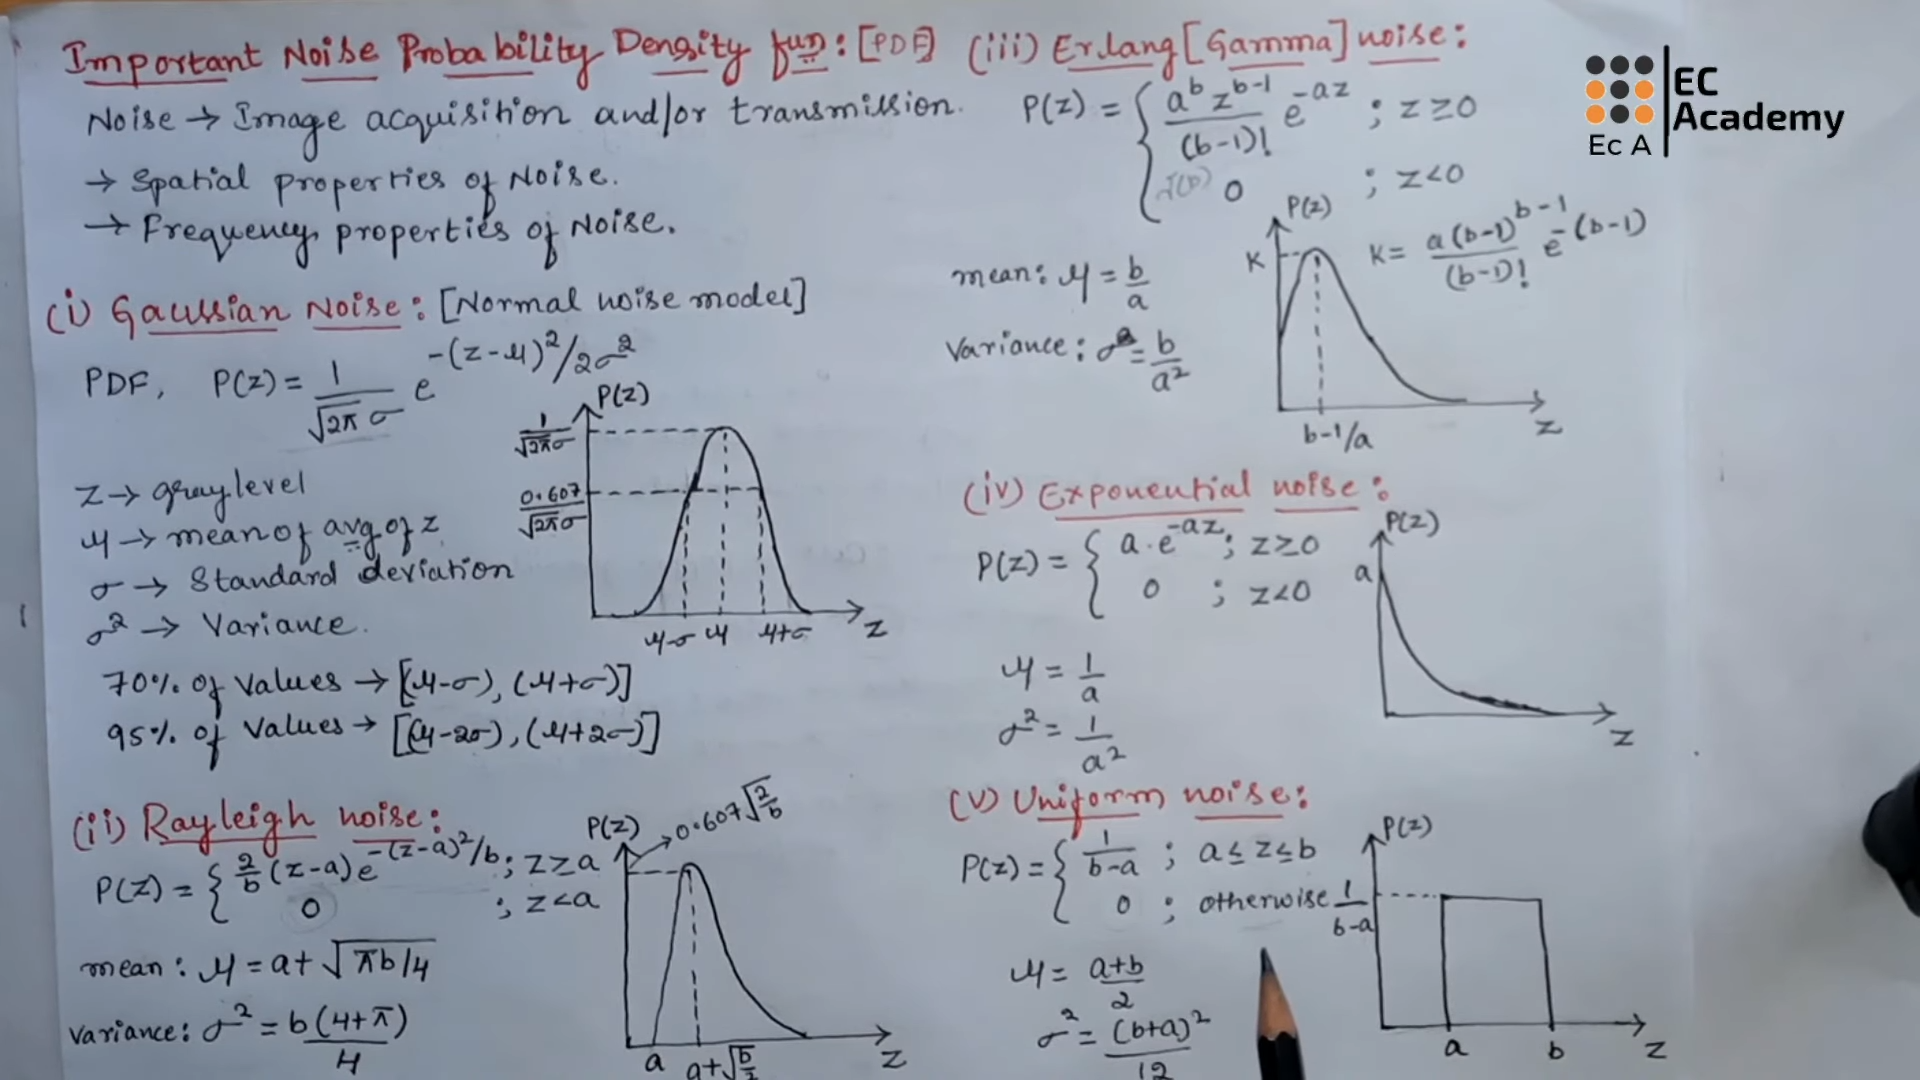 Important Noise Probability Density fun: [PDF]
Noise → Image acquisition and/or transmission.
→ Spatial properties of Noise.
→ Frequency properties of Noise.
(i) Gaussian Noise: [Normal noise model]
PDF, P(z) = 1/(√2π σ) e^-(z-μ)²/2σ²
P(z)
1/(√2π σ)
0.607/(√2π σ)
μ-σ μ μ+σ z
z → gray level
μ → mean of avg of z
σ → Standard deviation
σ² → Variance.
70% of values → [(μ-σ), (μ+σ)]
95% of values → [(μ-2σ), (μ+2σ)]
(ii) Rayleigh noise:
P(z) = { 2/b (z-a) e^-(z-a)²/b ; z≥a
0 ; z<a
mean: μ = a+√πb/4
variance: σ² = b(4+π)/4
P(z) → 0.607√2/b
a a+√b/2 z
(iii) Erlang [Gamma] noise:
P(z) = { a^b z^b-1/(b-1)! e^-az ; z≥0
0 ; z<0
mean: μ = b/a
Variance: σ² = b/a²
P(z)
K
K = a(b-1)^b-1/(b-1)! e^-(b-1)
b-1/a z
(iv) Exponential noise:
P(z) = { a.e^-az ; z≥0
0 ; z<0
μ = 1/a
σ² = 1/a²
P(z)
a
z
(v) Uniform noise:
P(z) = { 1/b-a ; a≤z≤b
0 ; otherwise
μ = a+b/2
σ² = (b+a)²/12
P(z)
1/b-a
a b z
EC
Academy
Ec A